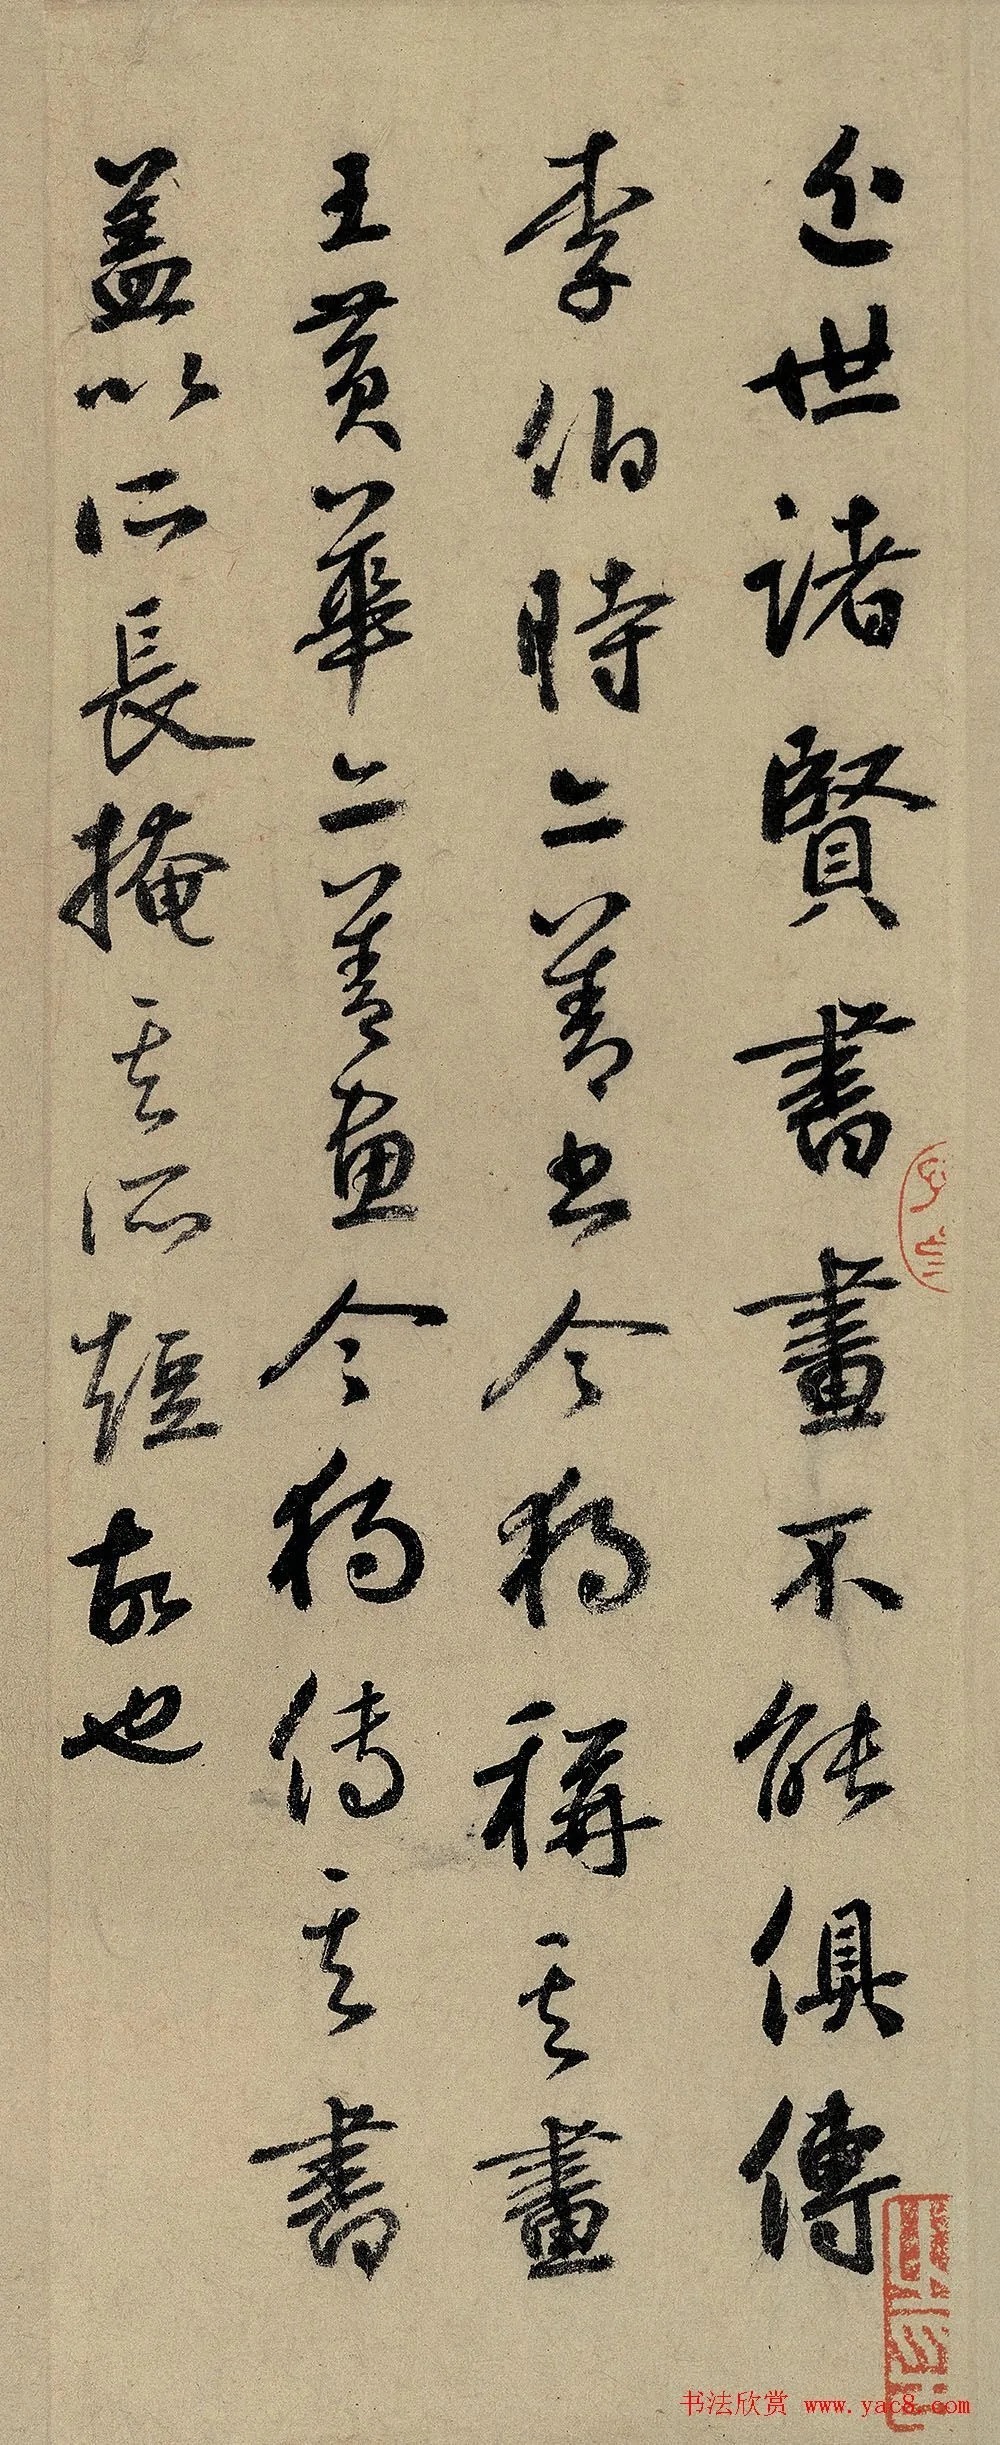 近世諸賢書畫不能俱傳
李伯時亦善書今獨稱其畫
王黃華亦善畫今獨傳其書
蓋以所長掩其所短故也
书法欣赏 www.yac8.com